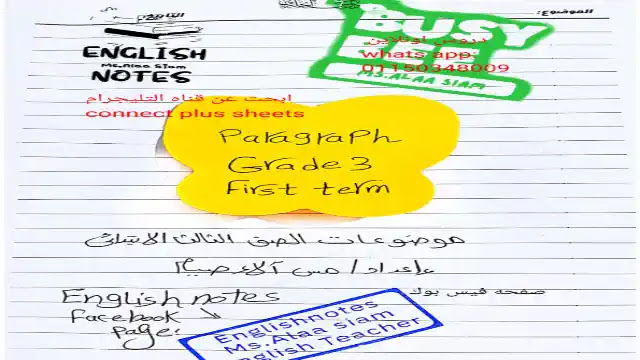 الموضوع:
التاريخ
BUSY
ENGLISH
Ms.Alaa Siam
NOTES
دروس اونلاين
whats app:
01150348009
MS.ALAA SIAM
ابحث عن قناه التليجرام
connect plus sheets
Paragraph
Grade 3
First term
موضوعات الصف الثالث الابتدائى
إعداد / مس آلاء صيام
English notes
صفحه فيس بوك
Facebook
Page:
Englishnotes
Ms.Alaa siam
English Teacher